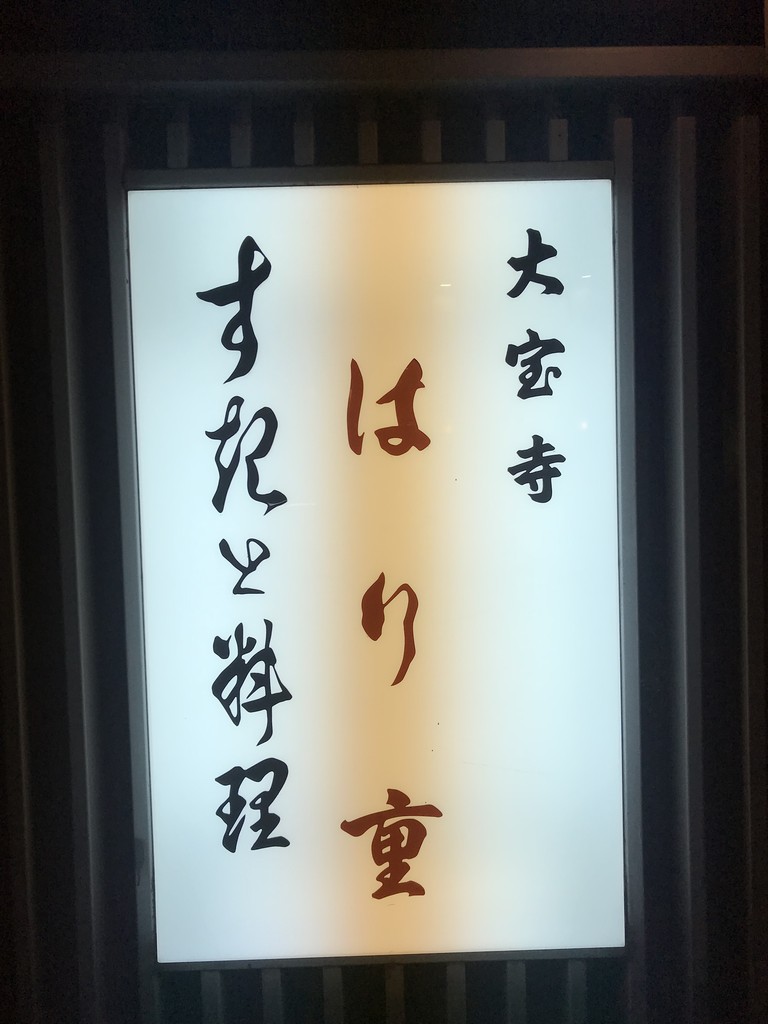 大宝寺
はり重
す起と料理